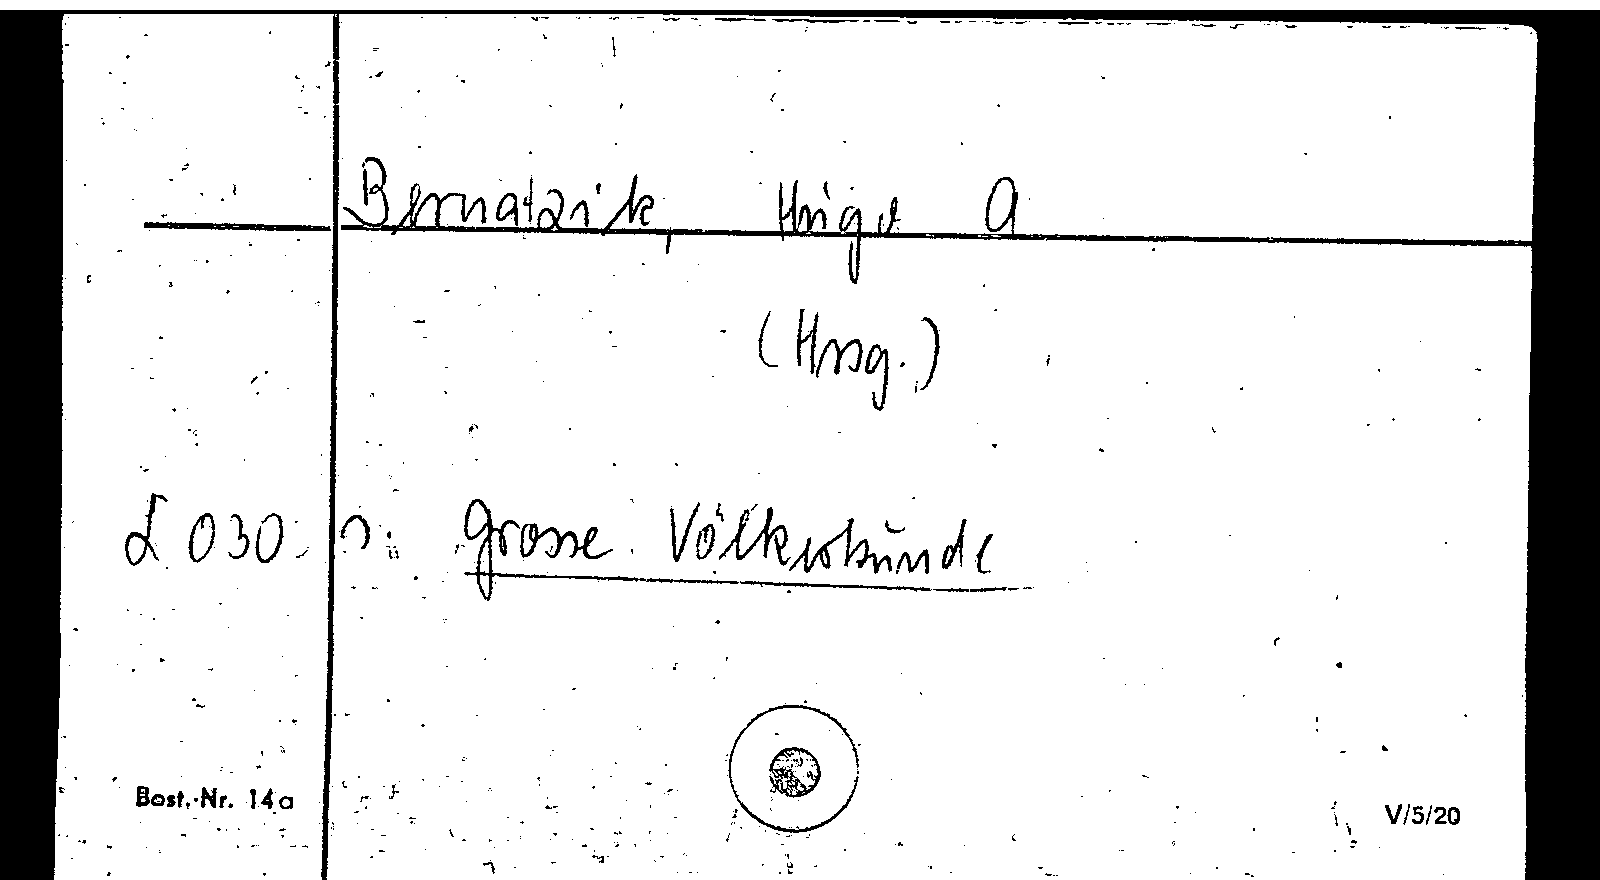 Bernatzik, Hugo A
(Hrsg.)
L 030 s. Grosse Völkerkunde
Best.-Nr. 14a
V/5/20